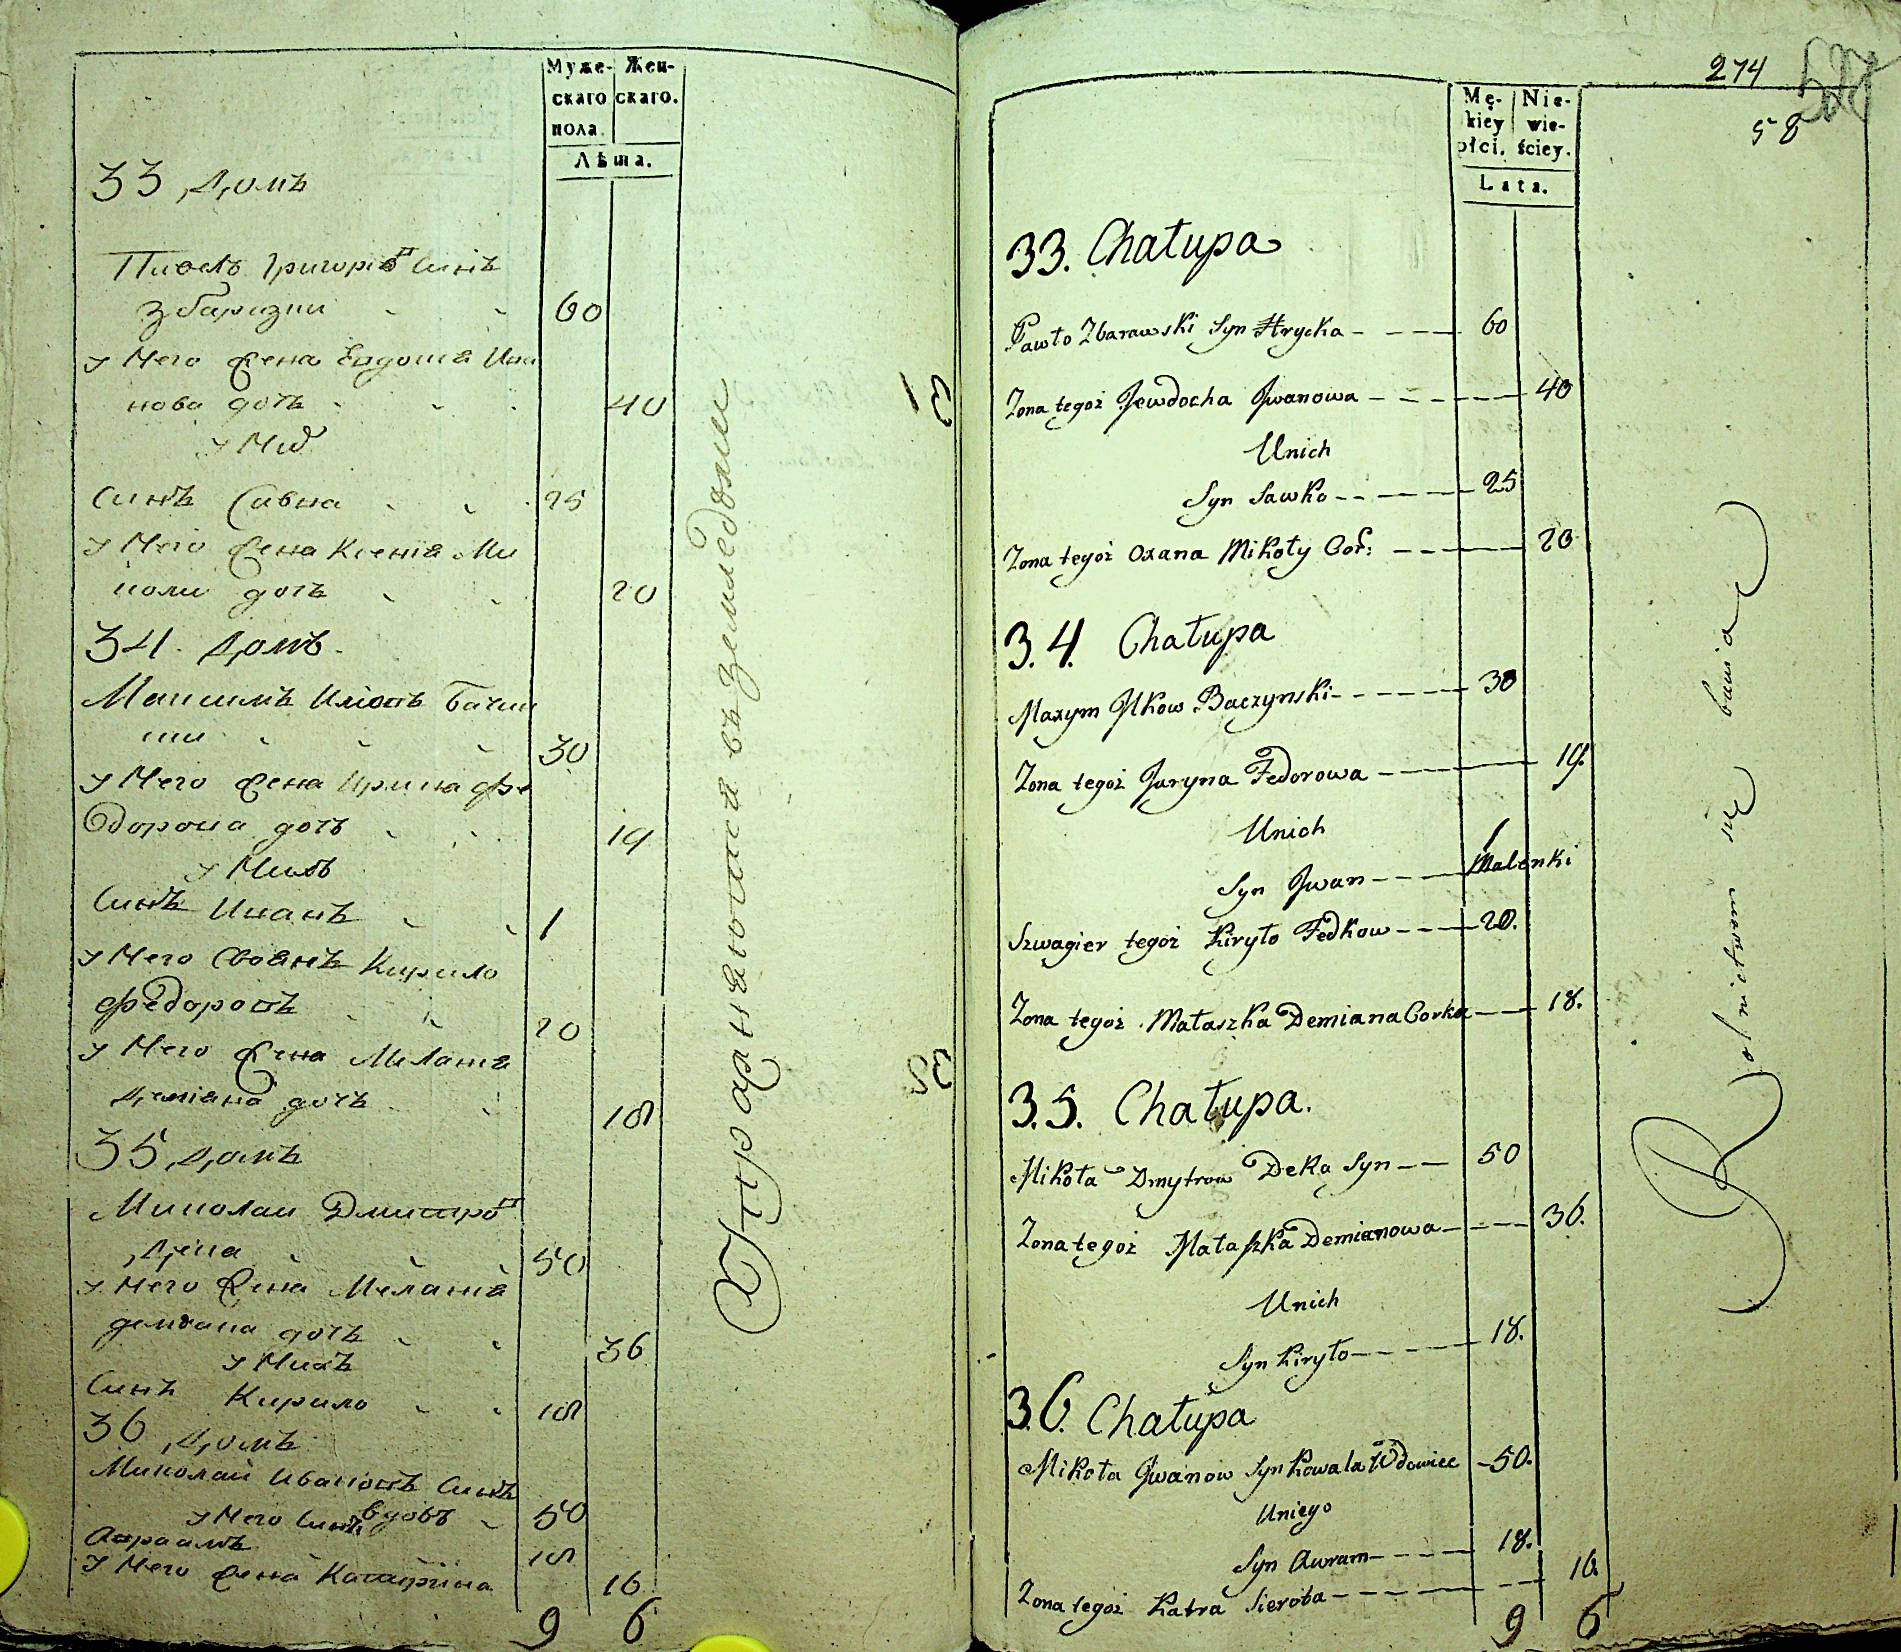 Муже- Жен-
скаго скаго.
пола.
Лѣта.
33 домъ
Павелъ Григоріевъ синъ
Збаразки 60
у Него Жена Евдошѣ Ива
нова дочь 40
у Них
Синъ Савка 25
у Него Жена Ксенія Ми
коли дочь 20
34. домъ.
Максимъ Илковъ Бачин
ски 30
у Него Жена Ирина Фе
дорова дочь 19
у Нихъ
Синъ Иванъ 1
у Него Своякъ Кирило
Федоровъ 20
у Него Жена Меланія
Деміана дочь 18
35 домъ
Миколаи Дмитров
Дека 50
у Него Жена Меланія
демиана дочь 36
у Нихъ
Синъ Кирило 18
36 домъ
Миколай Ивановъ Синъ
вдовъ 50
у Него Синъ
Авраамъ 18
У Него Жена Катарина 16
9 6
Упражняются въ земледелии
274
58
Mę- Nie-
kiey wie-
płci. ściey.
Lata.
33. Chałupa
Pawło Zbarawski Syn Hrycka 60
Zona tegoż Jewdocha Jwanowa 40
Unich
Syn Sawko 25
Zona tegoż Oxana Mikoły Cor: 20
3.4. Chałupa
Maxym Jlkow Baczynski 30
Zona tegoż Jaryna Fedorowa 19.
Unich 1
Syn Jwan Malenki
Szwagier tegoż Kiryło Fedkow 20.
Zona tegoż Małaszka Demiana Corka 18.
3.5. Chałupa.
Mikoła Dmytrow Deka Syn 50
Zona tegoż Małaszka Demianowa 36.
Unich
Syn Kiryło 18.
3.6. Chałupa
Mikoła Jwanow Syn Kowala Wdowiec 50.
Uniego
Syn Awram 18.
Zona tegoż Katra Sierota 16.
9 6
Rolnictwem się bawią